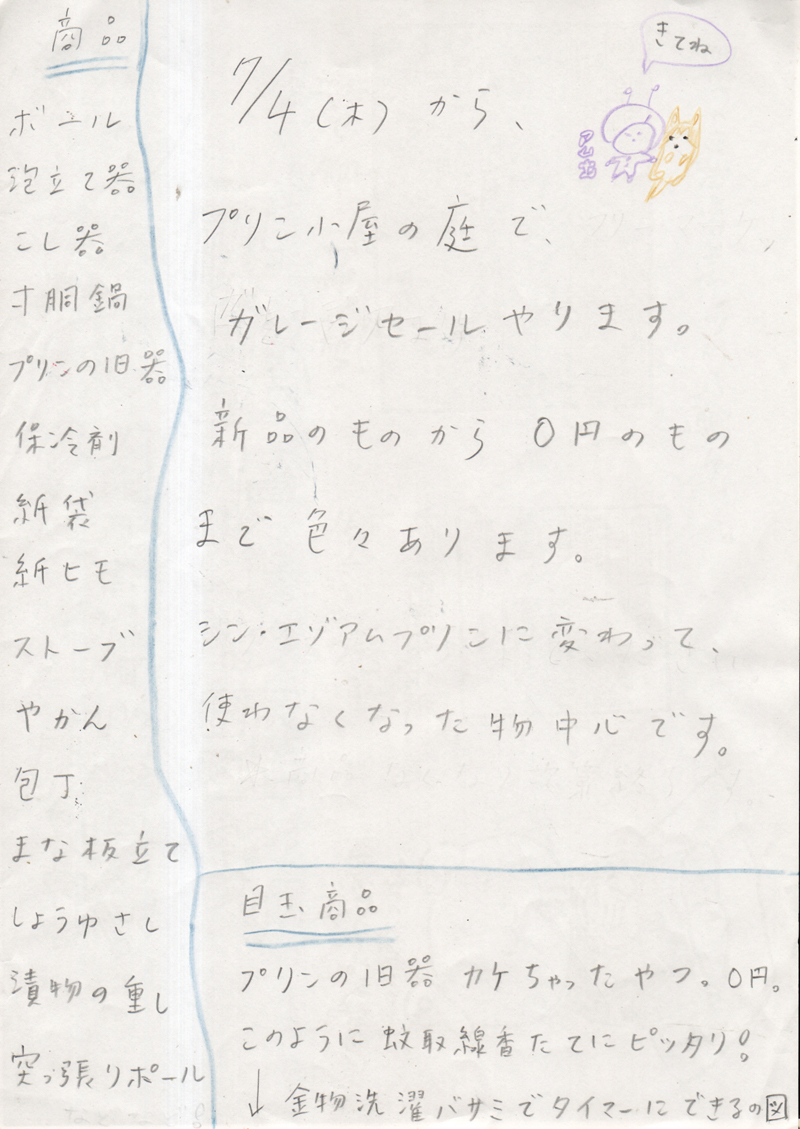 商品
ボール
泡立て器
こし器
寸胴鍋
プリンの旧器
保冷剤
紙袋
紙ヒモ
ストーブ
やかん
包丁
まな板立て
しょうゆさし
漬物の重し
突っ張りポール
きてね
7/4(木)から、
プリン小屋の庭で、
ガレージセールやります。
新品のものから 0円のもの
まで色々あります。
シン・エゾアムプリンに変わって、
使わなくなった物中心です。
目玉商品
プリンの旧器 カケちゃったやつ。0円。
このように蚊取線香たてにピッタリ!
↓ 金物洗濯バサミでタイマーにできるの図